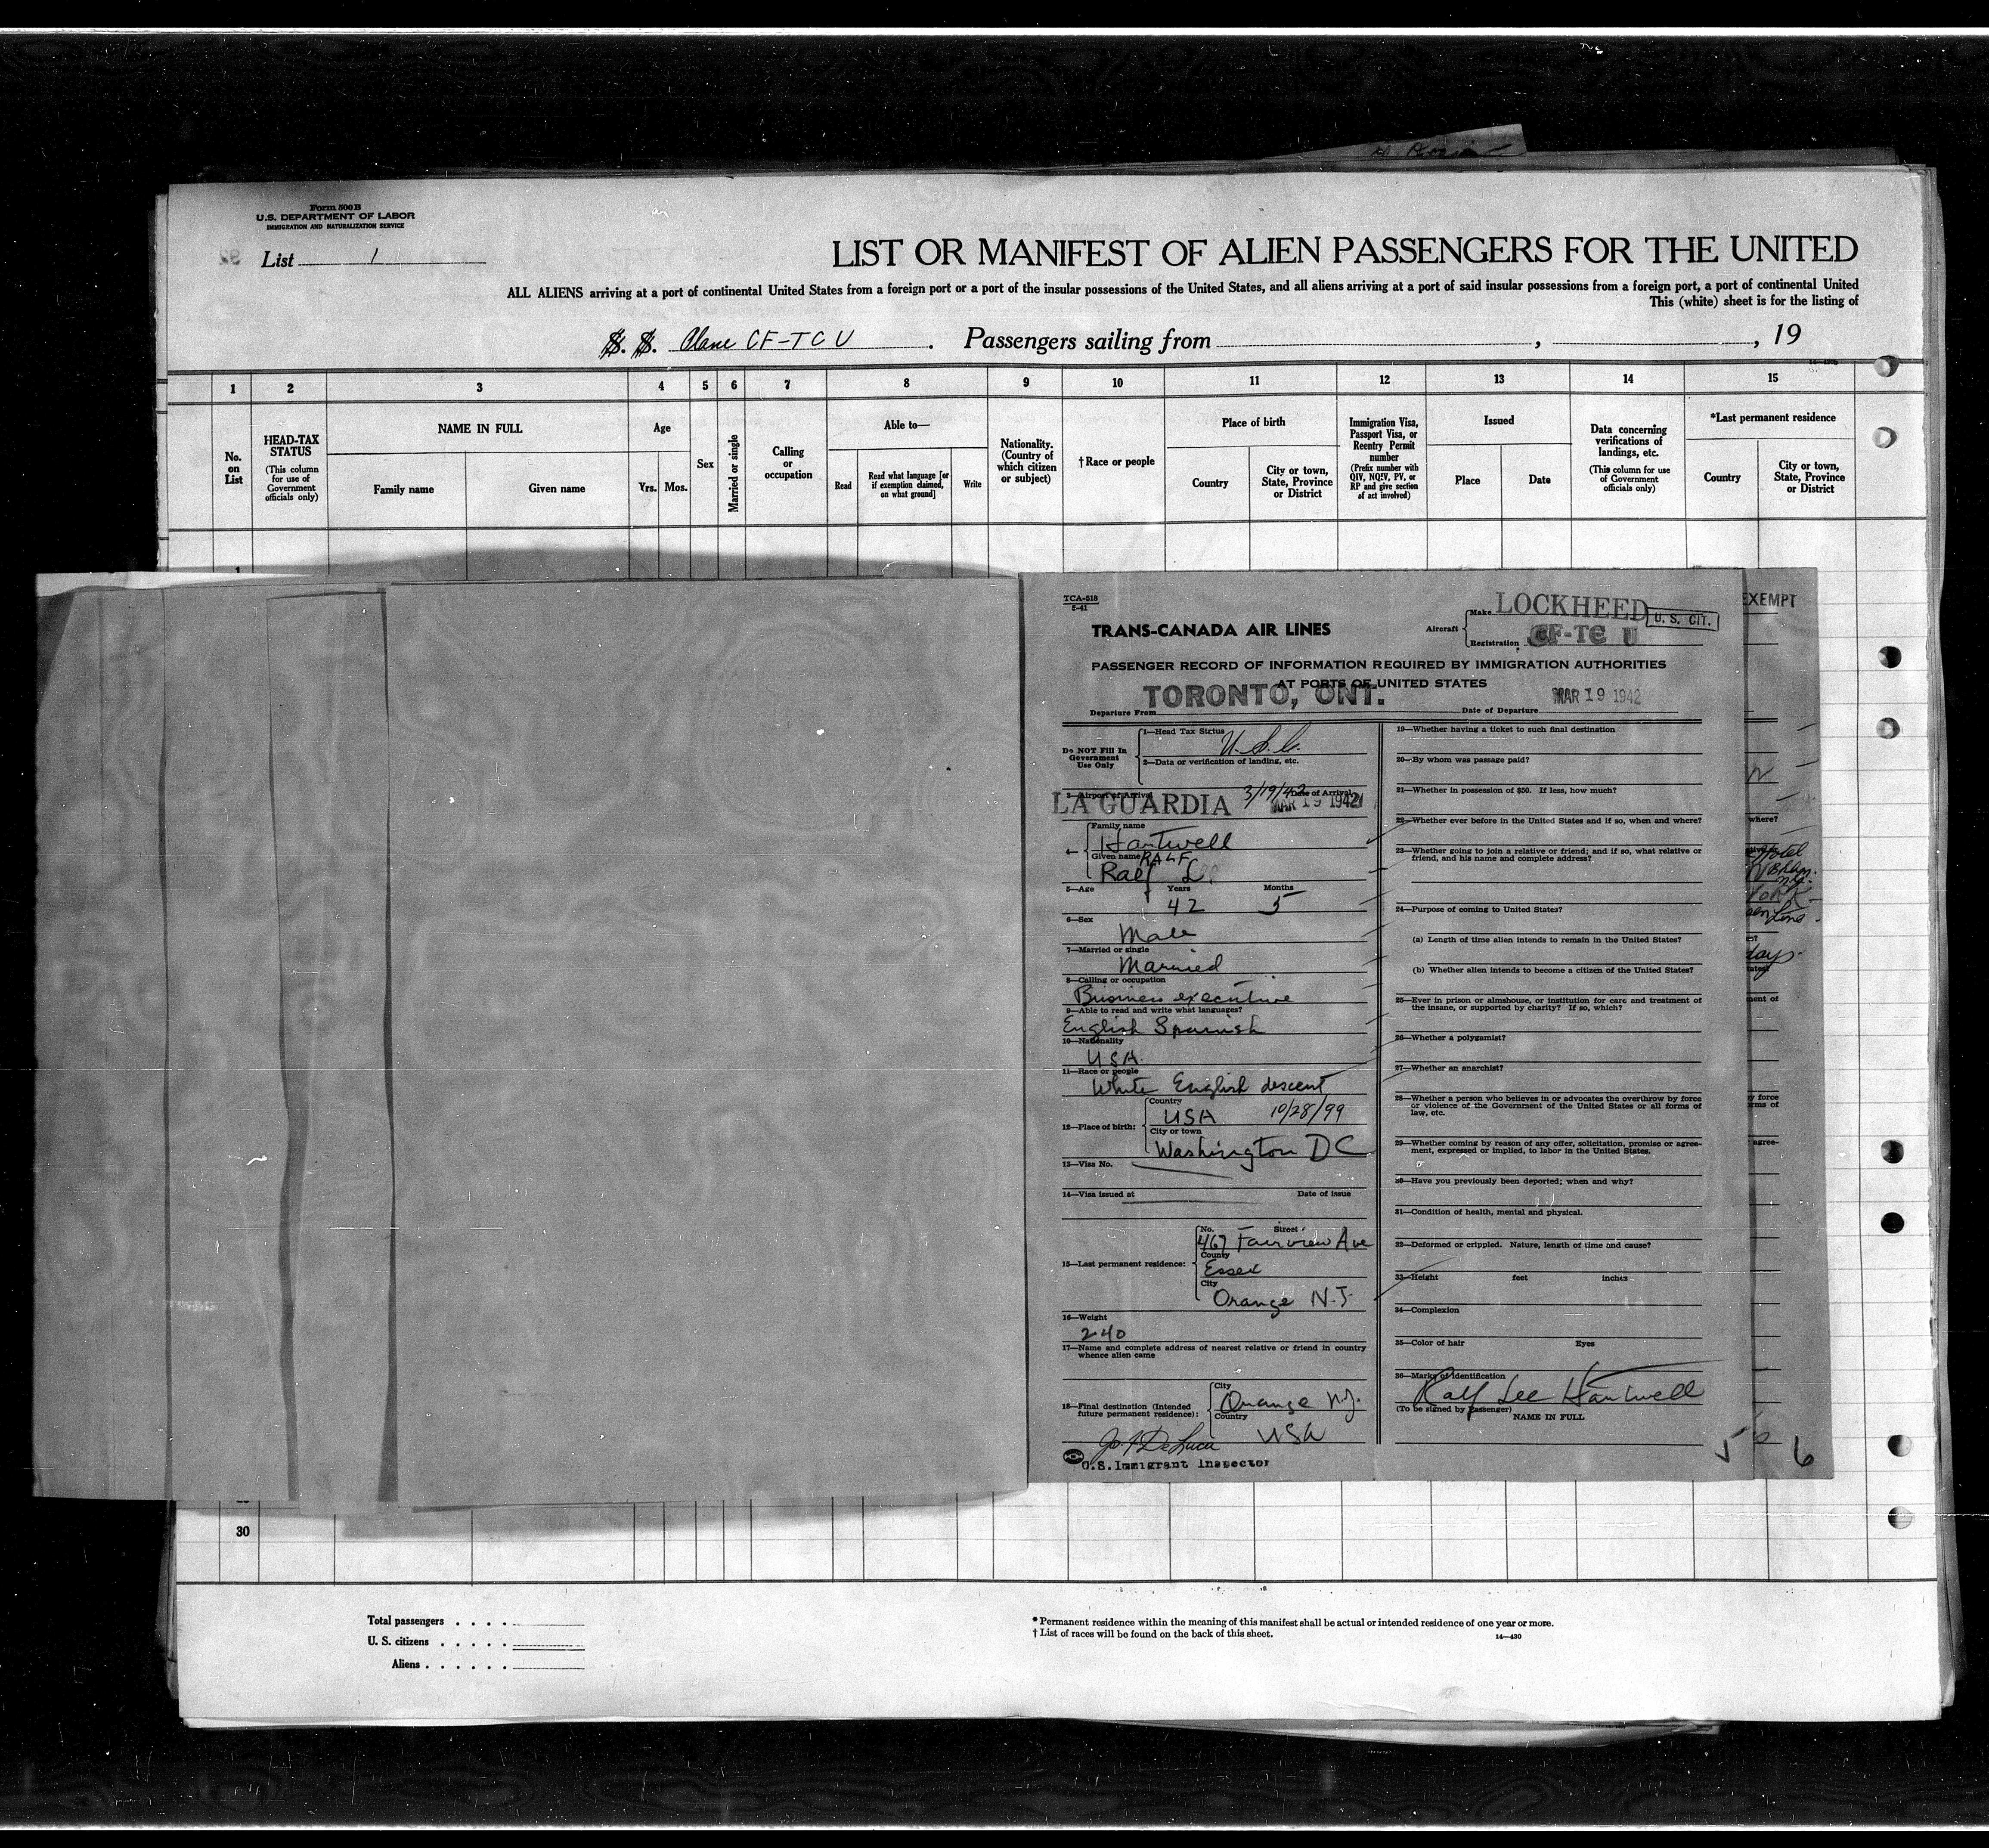 Form 500 B
U.S. DEPARTMENT OF LABOR
IMMIGRATION AND NATURALIZATION SERVICE
List 1
LIST OR MANIFEST OF ALIEN PASSENGERS FOR THE UNITED
ALL ALIENS arriving at a port of continental United States from a foreign port or a port of the insular possessions of the United States, and all aliens arriving at a port of said insular possessions from a foreign port, a port of continental United
This (white) sheet is for the listing of
S. S. Plane CF-TCU . Passengers sailing from , , 19
1 2 3 4 5 6 7 8 9 10 11 12 13 14 15
No. on List
HEAD-TAX STATUS
(This column for use of Government officials only)
NAME IN FULL
Family name Given name
Age
Yrs. Mos.
Sex
Married or single
Calling or occupation
Able to—
Read
Read what language [or if exemption claimed, on what ground]
Write
Nationality. (Country of which citizen or subject)
†Race or people
Place of birth
Country
City or town, State, Province or District
Immigration Visa, Passport Visa, or Reentry Permit number
(Prefix number with QIV, NQIV, PV, or RP and give section of act involved)
Issued
Place Date
Data concerning verifications of landings, etc.
(This column for use of Government officials only)
*Last permanent residence
Country
City or town, State, Province or District
1
TCA-518
5-41
TRANS-CANADA AIR LINES
Aircraft
Make LOCKHEED
U. S. CIT.
Registration CF-TC U
PASSENGER RECORD OF INFORMATION REQUIRED BY IMMIGRATION AUTHORITIES
AT PORTS OF UNITED STATES
Departure From TORONTO, ONT.
Date of Departure MAR 19 1942
Do NOT Fill In Government Use Only
1—Head Tax Status U.S.C.
2—Data or verification of landing, etc.
3—Airport of Arrival LA GUARDIA
3/19/42 Date of Arrival MAR 19 1942
4—
Family name
Hartwell
Given name RALF
Ralf L.
5—Age Years Months
42 5
6—Sex
Male
7—Married or single
Married
8—Calling or occupation
Business executive
9—Able to read and write what languages?
English Spanish
10—Nationality
USA
11—Race or people
White English descent
12—Place of birth:
Country
USA 10/28/99
City or town
Washington DC
13—Visa No.
14—Visa issued at Date of issue
15—Last permanent residence:
No. Street
467 Fairview Ave
County
Essex
City
Orange N.J.
16—Weight
240
17—Name and complete address of nearest relative or friend in country whence alien came
18—Final destination (Intended future permanent residence):
City
Orange N.J.
Country
USA
Jo. J. DeLuca
U.S. Immigrant Inspector
19—Whether having a ticket to such final destination
20—By whom was passage paid?
21—Whether in possession of $50. If less, how much?
22—Whether ever before in the United States and if so, when and where?
23—Whether going to join a relative or friend; and if so, what relative or friend, and his name and complete address?
24—Purpose of coming to United States?
(a) Length of time alien intends to remain in the United States?
(b) Whether alien intends to become a citizen of the United States?
25—Ever in prison or almshouse, or institution for care and treatment of the insane, or supported by charity? If so, which?
26—Whether a polygamist?
27—Whether an anarchist?
28—Whether a person who believes in or advocates the overthrow by force or violence of the Government of the United States or all forms of law, etc.
29—Whether coming by reason of any offer, solicitation, promise or agreement, expressed or implied, to labor in the United States.
30—Have you previously been deported; when and why?
31—Condition of health, mental and physical.
32—Deformed or crippled. Nature, length of time and cause?
33—Height feet inches
34—Complexion
35—Color of hair Eyes
36—Marks of identification
Ralf Lee Hartwell
(To be signed by Passenger)
NAME IN FULL
5
EXEMPT
where?
Hotel
days
ment of
y force
rms of
agree-
6
30
Total passengers
U. S. citizens
Aliens
* Permanent residence within the meaning of this manifest shall be actual or intended residence of one year or more.
† List of races will be found on the back of this sheet.
14—430